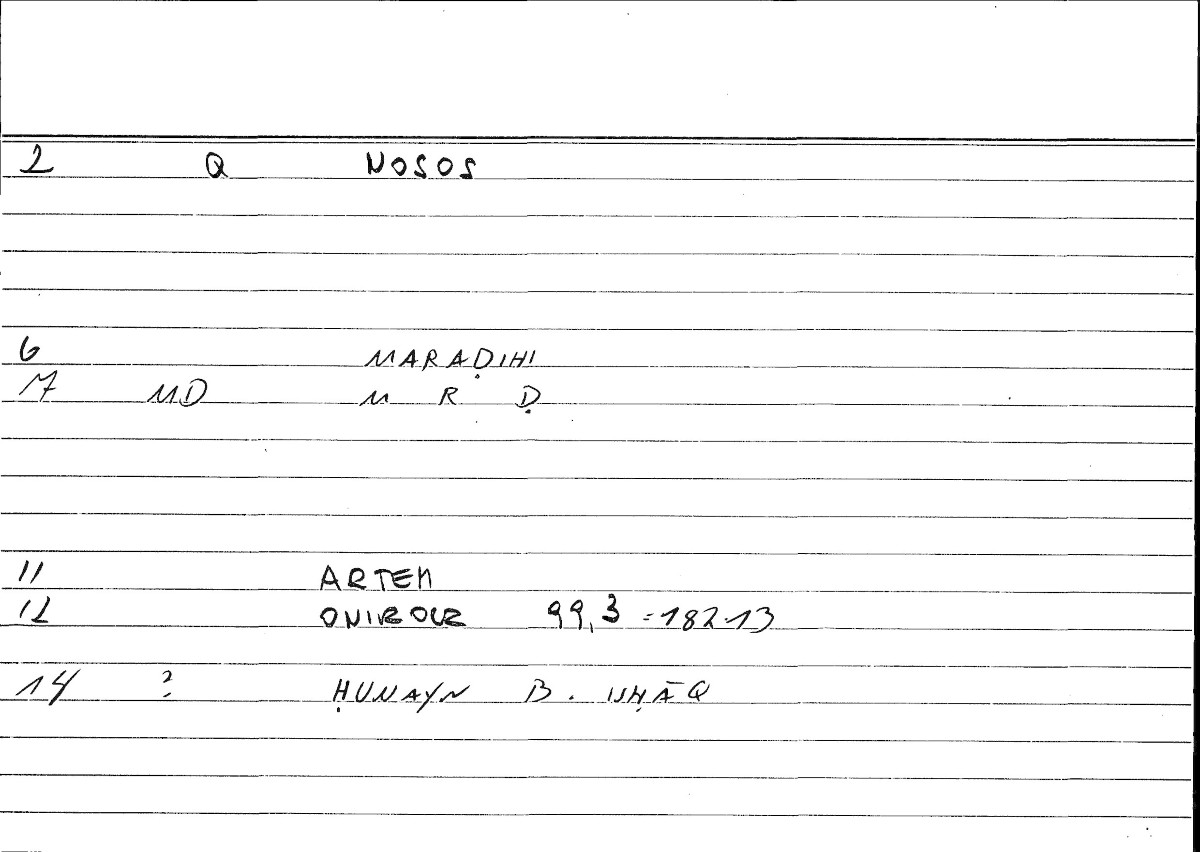 2 Q NOSOS
6 MARAḌIHI
7 MD M R Ḍ
11 ARTEM
12 ONIROCR 99,3 = 182.13
14 ? ḤUNAYN B. ISḤĀQ